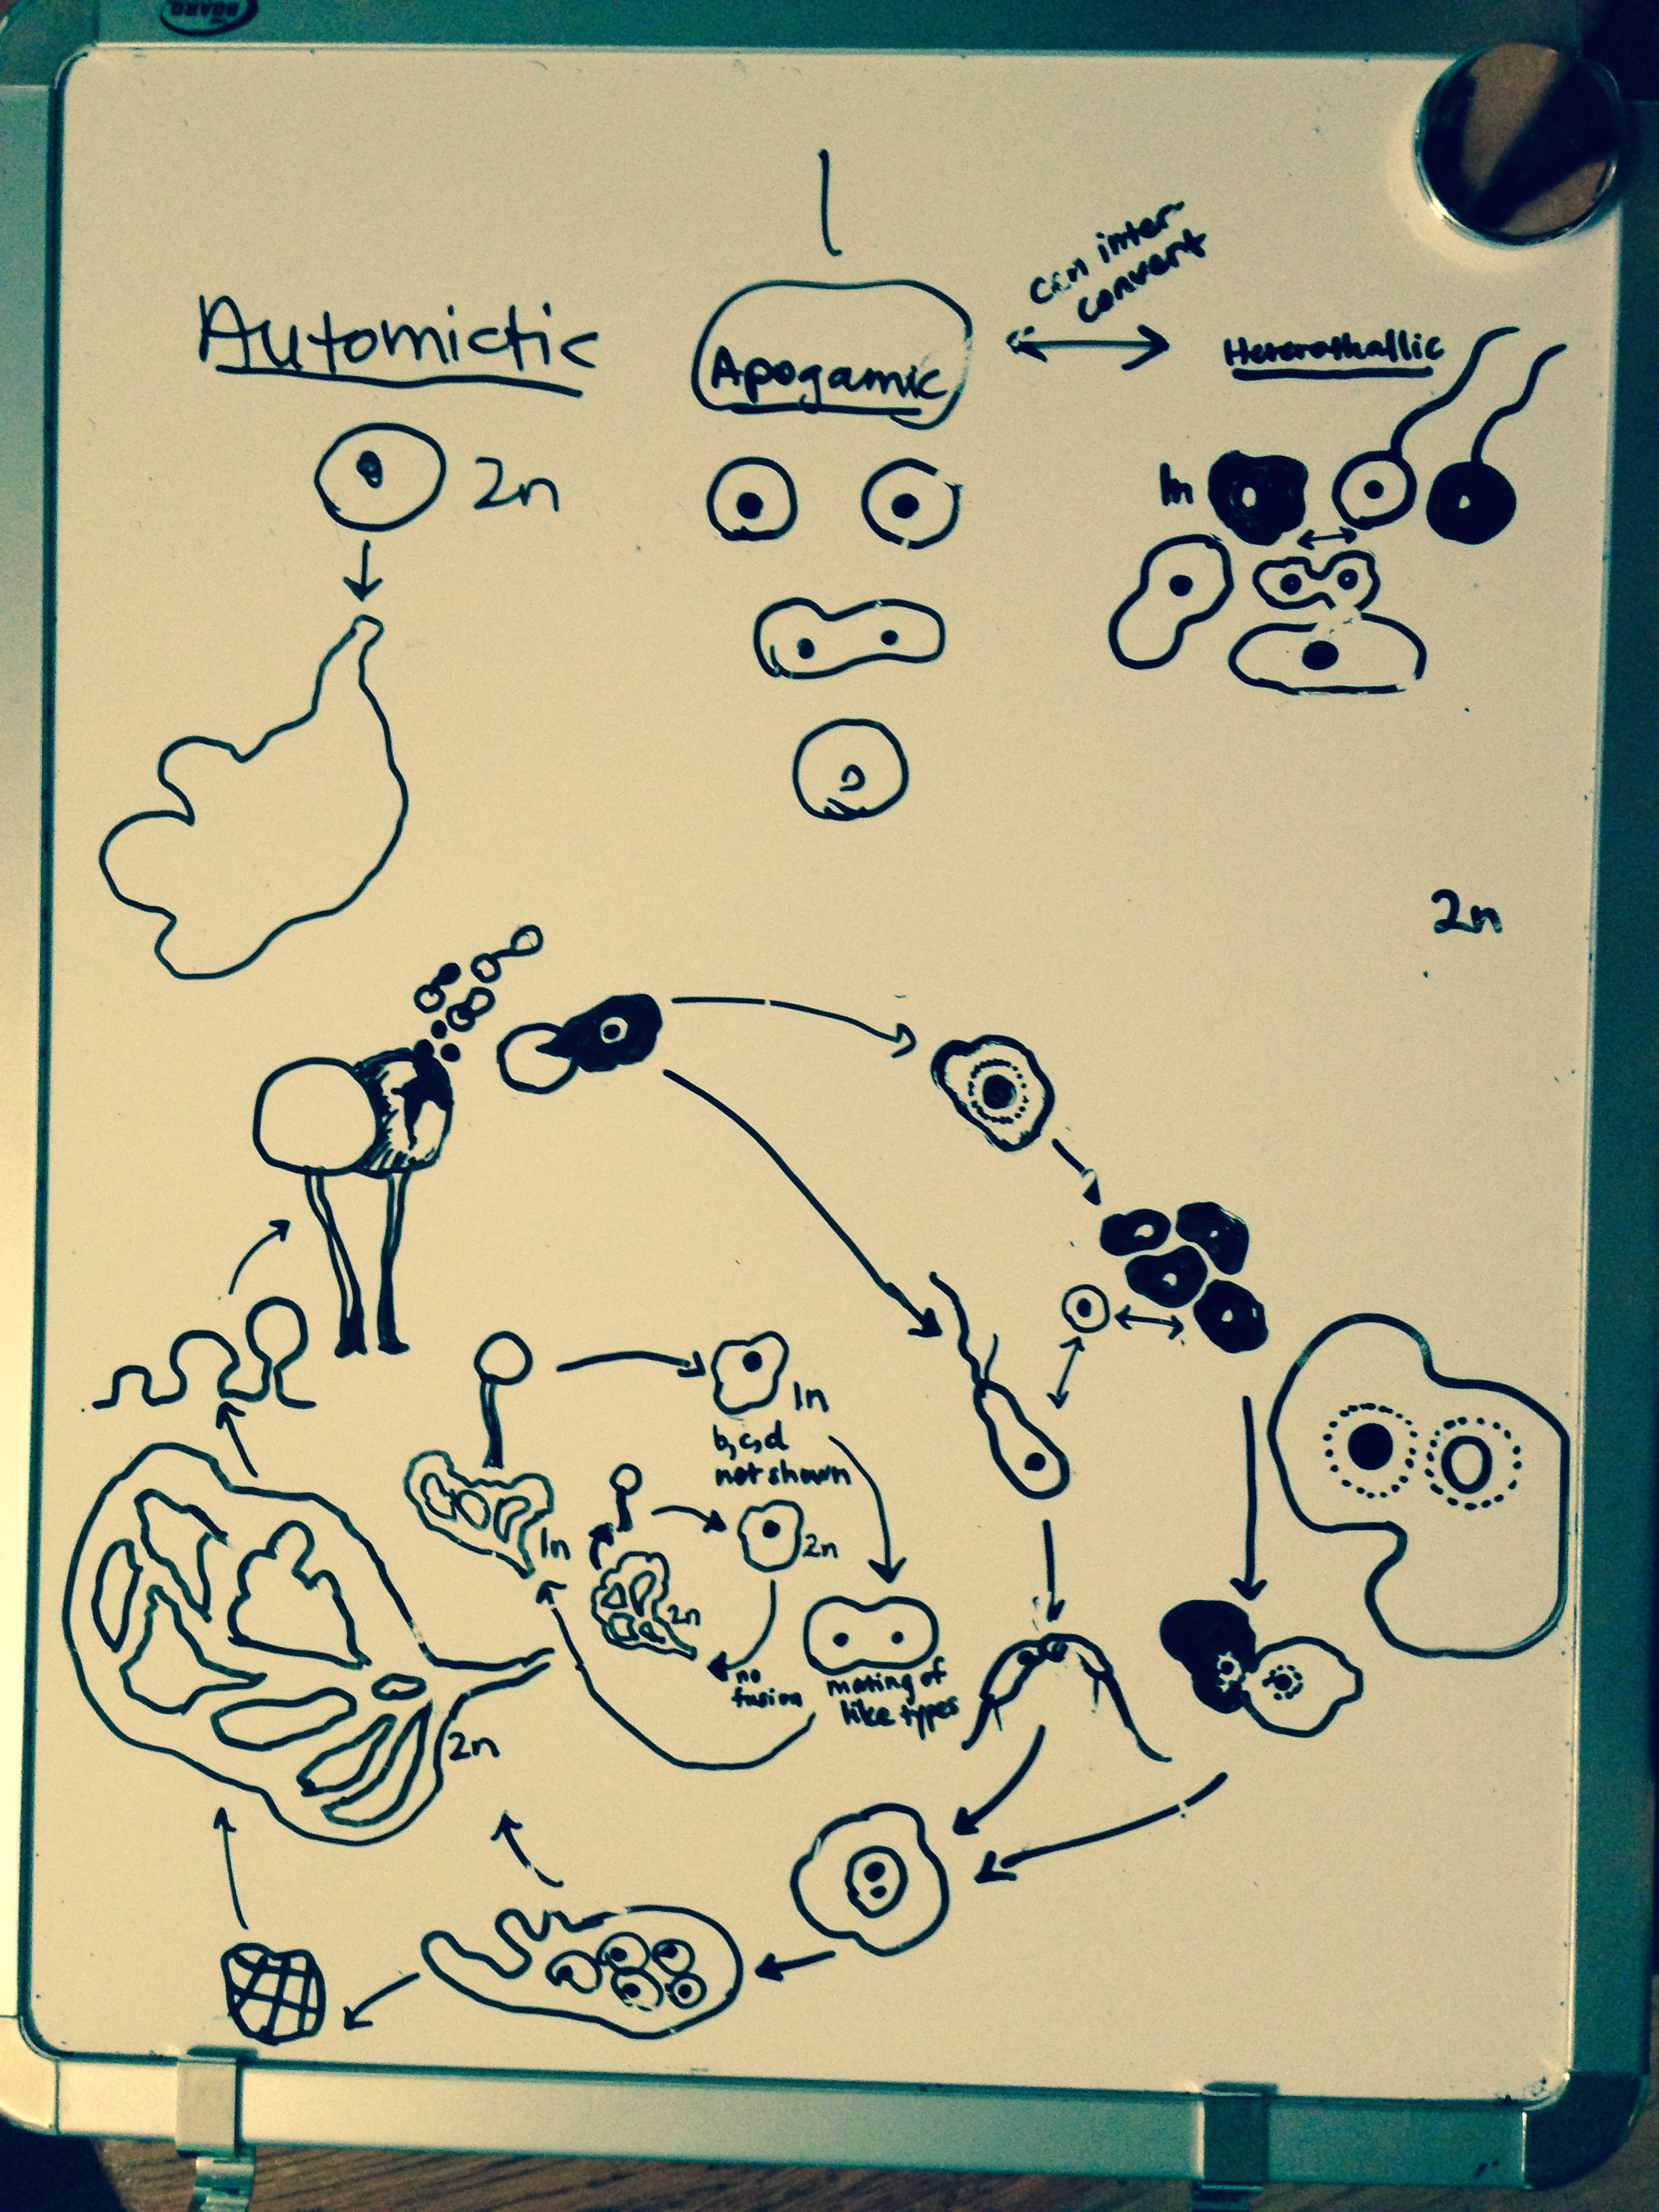 BOARD
can inter-
convert
Automictic
Apogamic
Heterothallic
2n
1n
2n
1n
b,c,d
not shown
1n
2n
2n
no
fusion
mating of
like types
2n